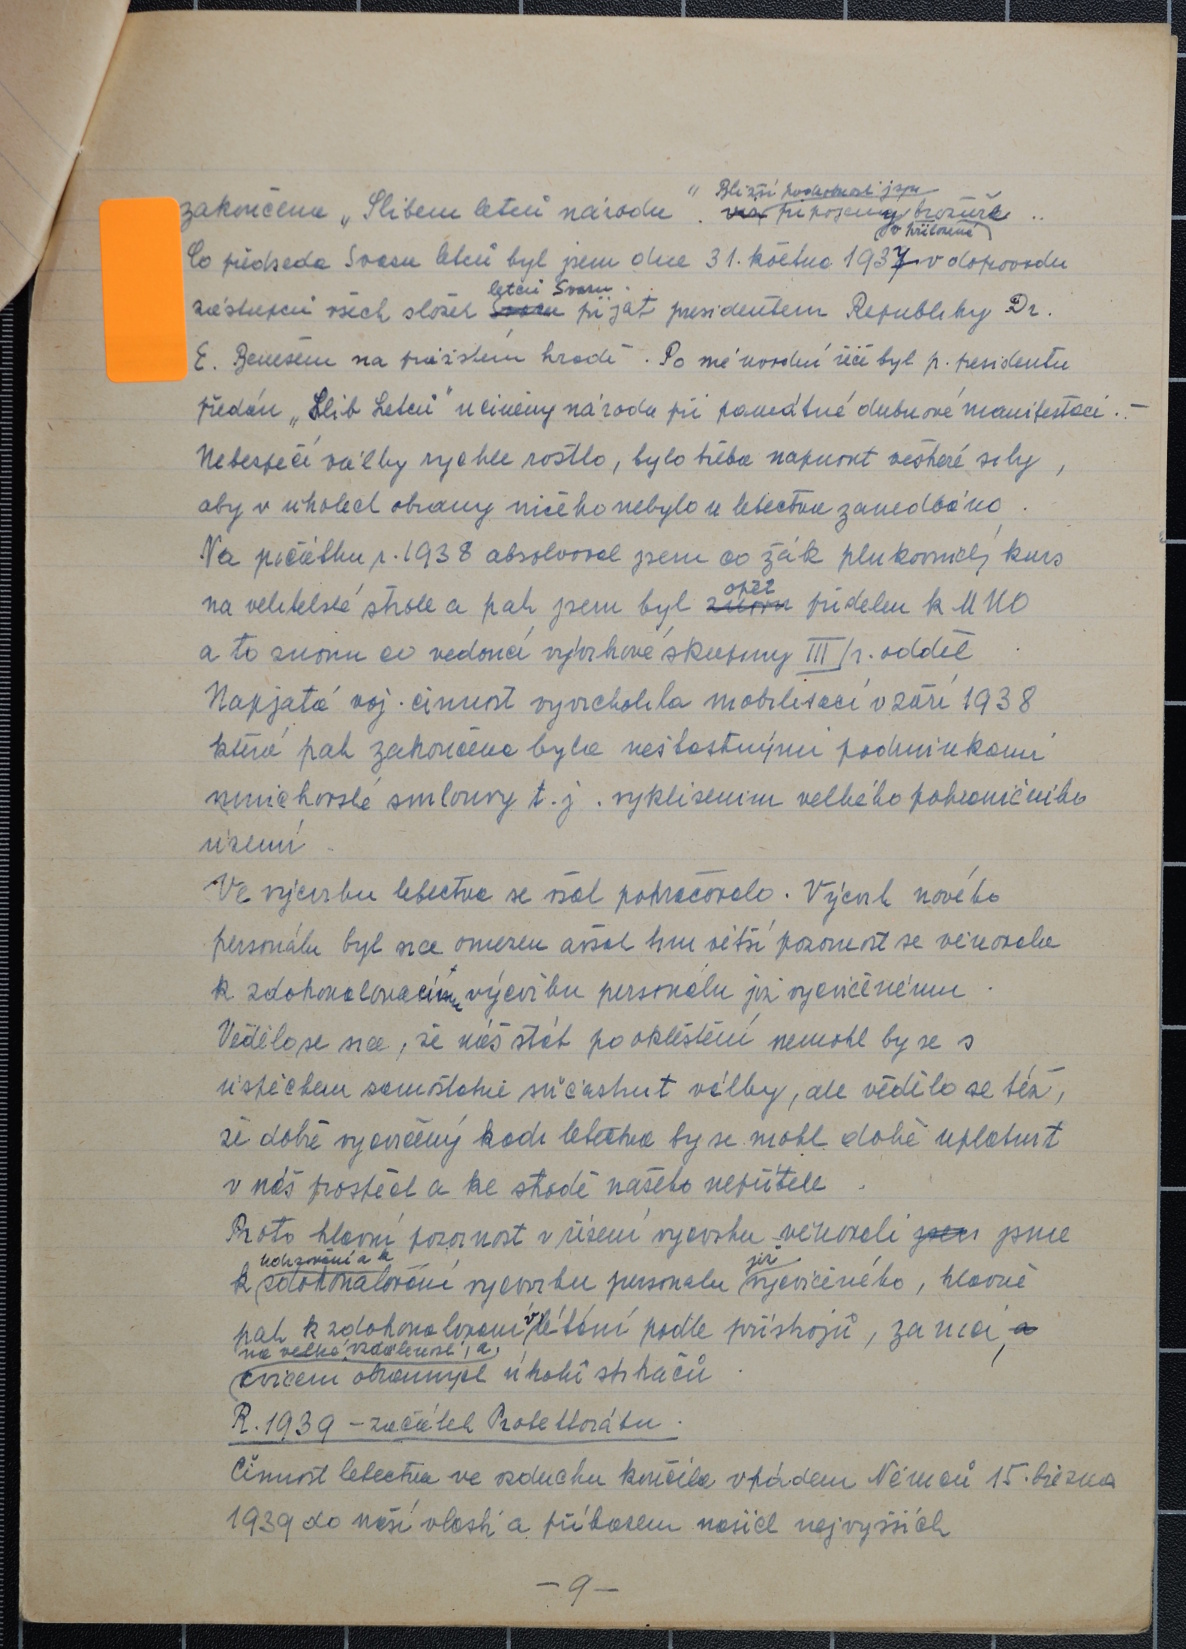 zakončena „Slibem letců národu“. Bližší podrobnosti jsou
viz připojený brožuře ..
v přiložené
Co předseda Svazu letců byl jsem dne 31. května 1937 v doprovodu
letců Svazu
zástupců všech složek Svazu přijat presidentem Republiky Dr.
E. Benešem na pražském hradě. Po mé úvodní řeči byl p. presidentu
předán „Slib Letců“ učiněný národu při památné dubnové manifestaci. –
Nebezpečí války rychle rostlo, bylo třeba napnout veškeré síly,
aby v ohledech obrany ničeho nebylo u letectva zanedbáno.
Na počátku r. 1938 absolvoval jsem co žák plukovnický kurs
opět
na velitelské škole a pak jsem byl znovu přidělen k MNO
a to znovu co vedoucí výcvikové skupiny III/r. odděl.
Napjatá voj. činnost vyvrcholila mobilisací v září 1938
která pak zakončena byla nešťastnými podmínkami
mnichovské smlouvy t.j. vyklizením velkého pohraničního
území.
Ve výcviku letectva se však pokračovalo. Výcvik nového
personálu byl sice omezen avšak tím větší pozornost se věnovala
k zdokonalovacímu výcviku personálu již vycvičenému.
Vědělo se sice, že náš stát po okleštění nemohl by se s
úspěchem samostatně súčastnit války, ale vědělo se též,
že dobře vycvičený kádr letectva by se mohl dobře uplatnit
v náš prospěch a ke škodě našeho nepřítele.
Proto hlavní pozornost v řízení výcviku věnovali jsem jsme
udržování a k již
k zdokonalování výcviku personálu vycvičeného, hlavně
pak k zdokonalování v létání podle přístrojů, za noci, a
na velké vzdálenosti, a
cvičení obranných úkolů stíhačů.
R. 1939 – začátek Protektorátu.
Činnost letectva ve vzduchu končila vpádem Němců 15. března
1939 do naší vlasti a příkazem našich nejvyšších
– 9 –